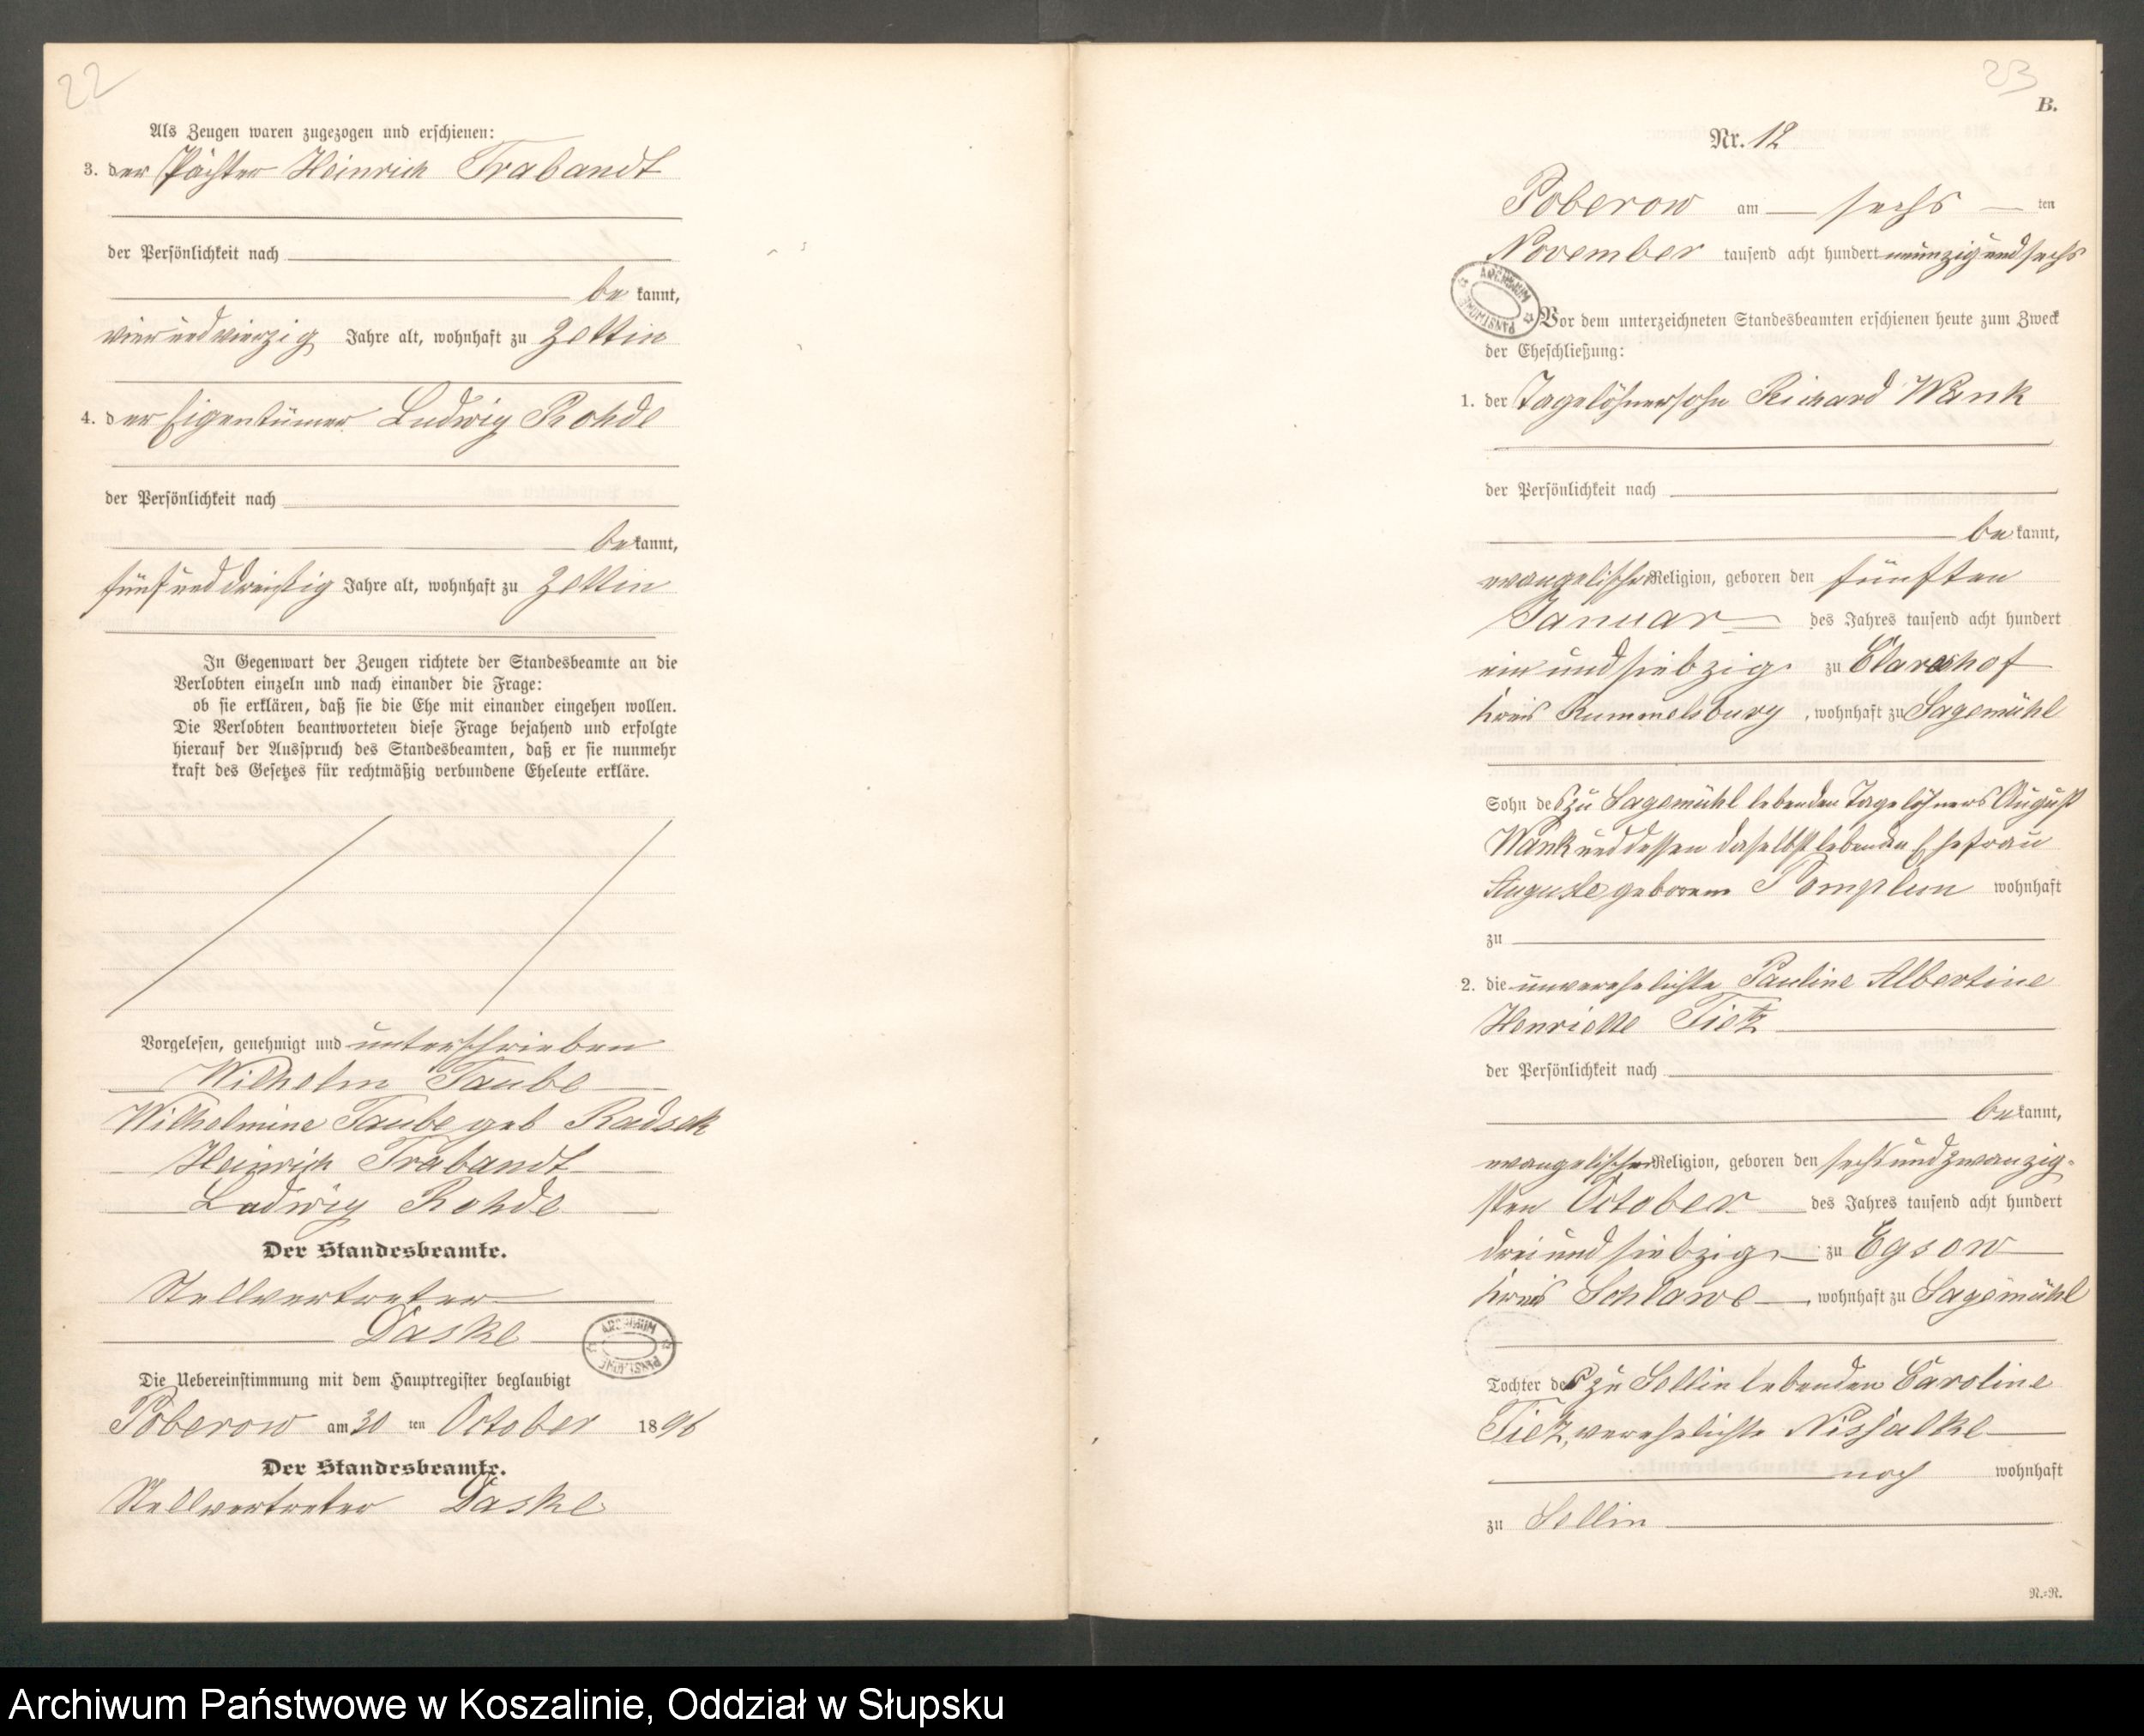 22
Als Zeugen waren zugezogen und erschienen:
3. der Pächter Heinrich Trabandt
der Persönlichkeit nach
be kannt,
vierundvierzig Jahre alt, wohnhaft zu Zettin
4. der Eigentümer Ludwig Rohde
der Persönlichkeit nach
be kannt,
fünfunddreißig Jahre alt, wohnhaft zu Zettin
In Gegenwart der Zeugen richtete der Standesbeamte an die
Verlobten einzeln und nach einander die Frage:
ob sie erklären, daß sie die Ehe mit einander eingehen wollen.
Die Verlobten beantworteten diese Frage bejahend und erfolgte
hierauf der Ausspruch des Standesbeamten, daß er sie nunmehr
kraft des Gesetzes für rechtmäßig verbundene Eheleute erkläre.
Vorgelesen, genehmigt und unterschrieben
Wilhelm Taube
Wilhelmine Taube geb Radsck
Heinrich Trabandt
Ludwig Rohde
Der Standesbeamte.
Stellvertreter
Daske
ARCHIWUM PAŃSTWOWE
Die Uebereinstimmung mit dem Hauptregister beglaubigt
Poberow am 30 ten October 1896
Der Standesbeamte.
Stellvertreter Daske
23
B.
Nr. 12
Poberow am sechs ten
November tausend acht hundert neunzig und sechs
ARCHIWUM PAŃSTWOWE
Vor dem unterzeichneten Standesbeamten erschienen heute zum Zweck
der Eheschließung:
1. der Tagelöhnersohn Richard Wank
der Persönlichkeit nach
be kannt,
evangelischer Religion, geboren den fünften
Januar des Jahres tausend acht hundert
ein und siebzig zu Clarashof
Kreis Rummelsburg, wohnhaft zu Sagemühl
Sohn des zu Sagemühl lebenden Tagelöhners August
Wank und dessen daselbst lebenden Ehefrau
Auguste geborene Pomplun wohnhaft
zu
2. die unverehelichte Pauline Albertine
Henriette Tietz
der Persönlichkeit nach
be kannt,
evangelischer Religion, geboren den sechsundzwanzig-
sten October des Jahres tausend acht hundert
drei und siebzig zu Egsow
Kreis Schlawe, wohnhaft zu Sagemühl
Tochter der zu Sellin lebenden Caroline
Tietz, verehelichte Nissalke
noch wohnhaft
zu Sellin
N.=R.
Archiwum Państwowe w Koszalinie, Oddział w Słupsku